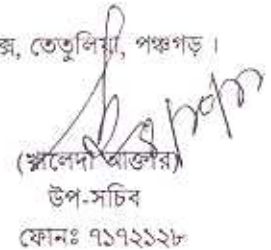 ক্স, তেতুলিয়া, পঞ্চগড় ।
(খালেদা আক্তার)
উপ-সচিব
ফোনঃ ৭১৭২১২৮